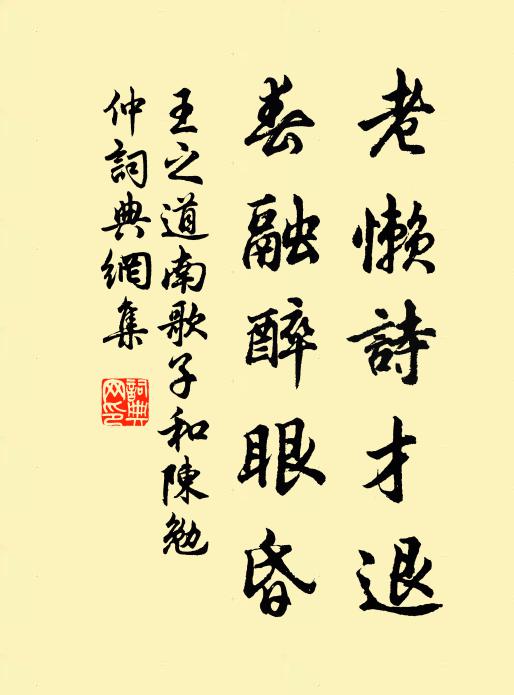 老懶詩才退
春融醉眼昏
王之道南歌子和陳勉
仲詞典網集
詞典
网印